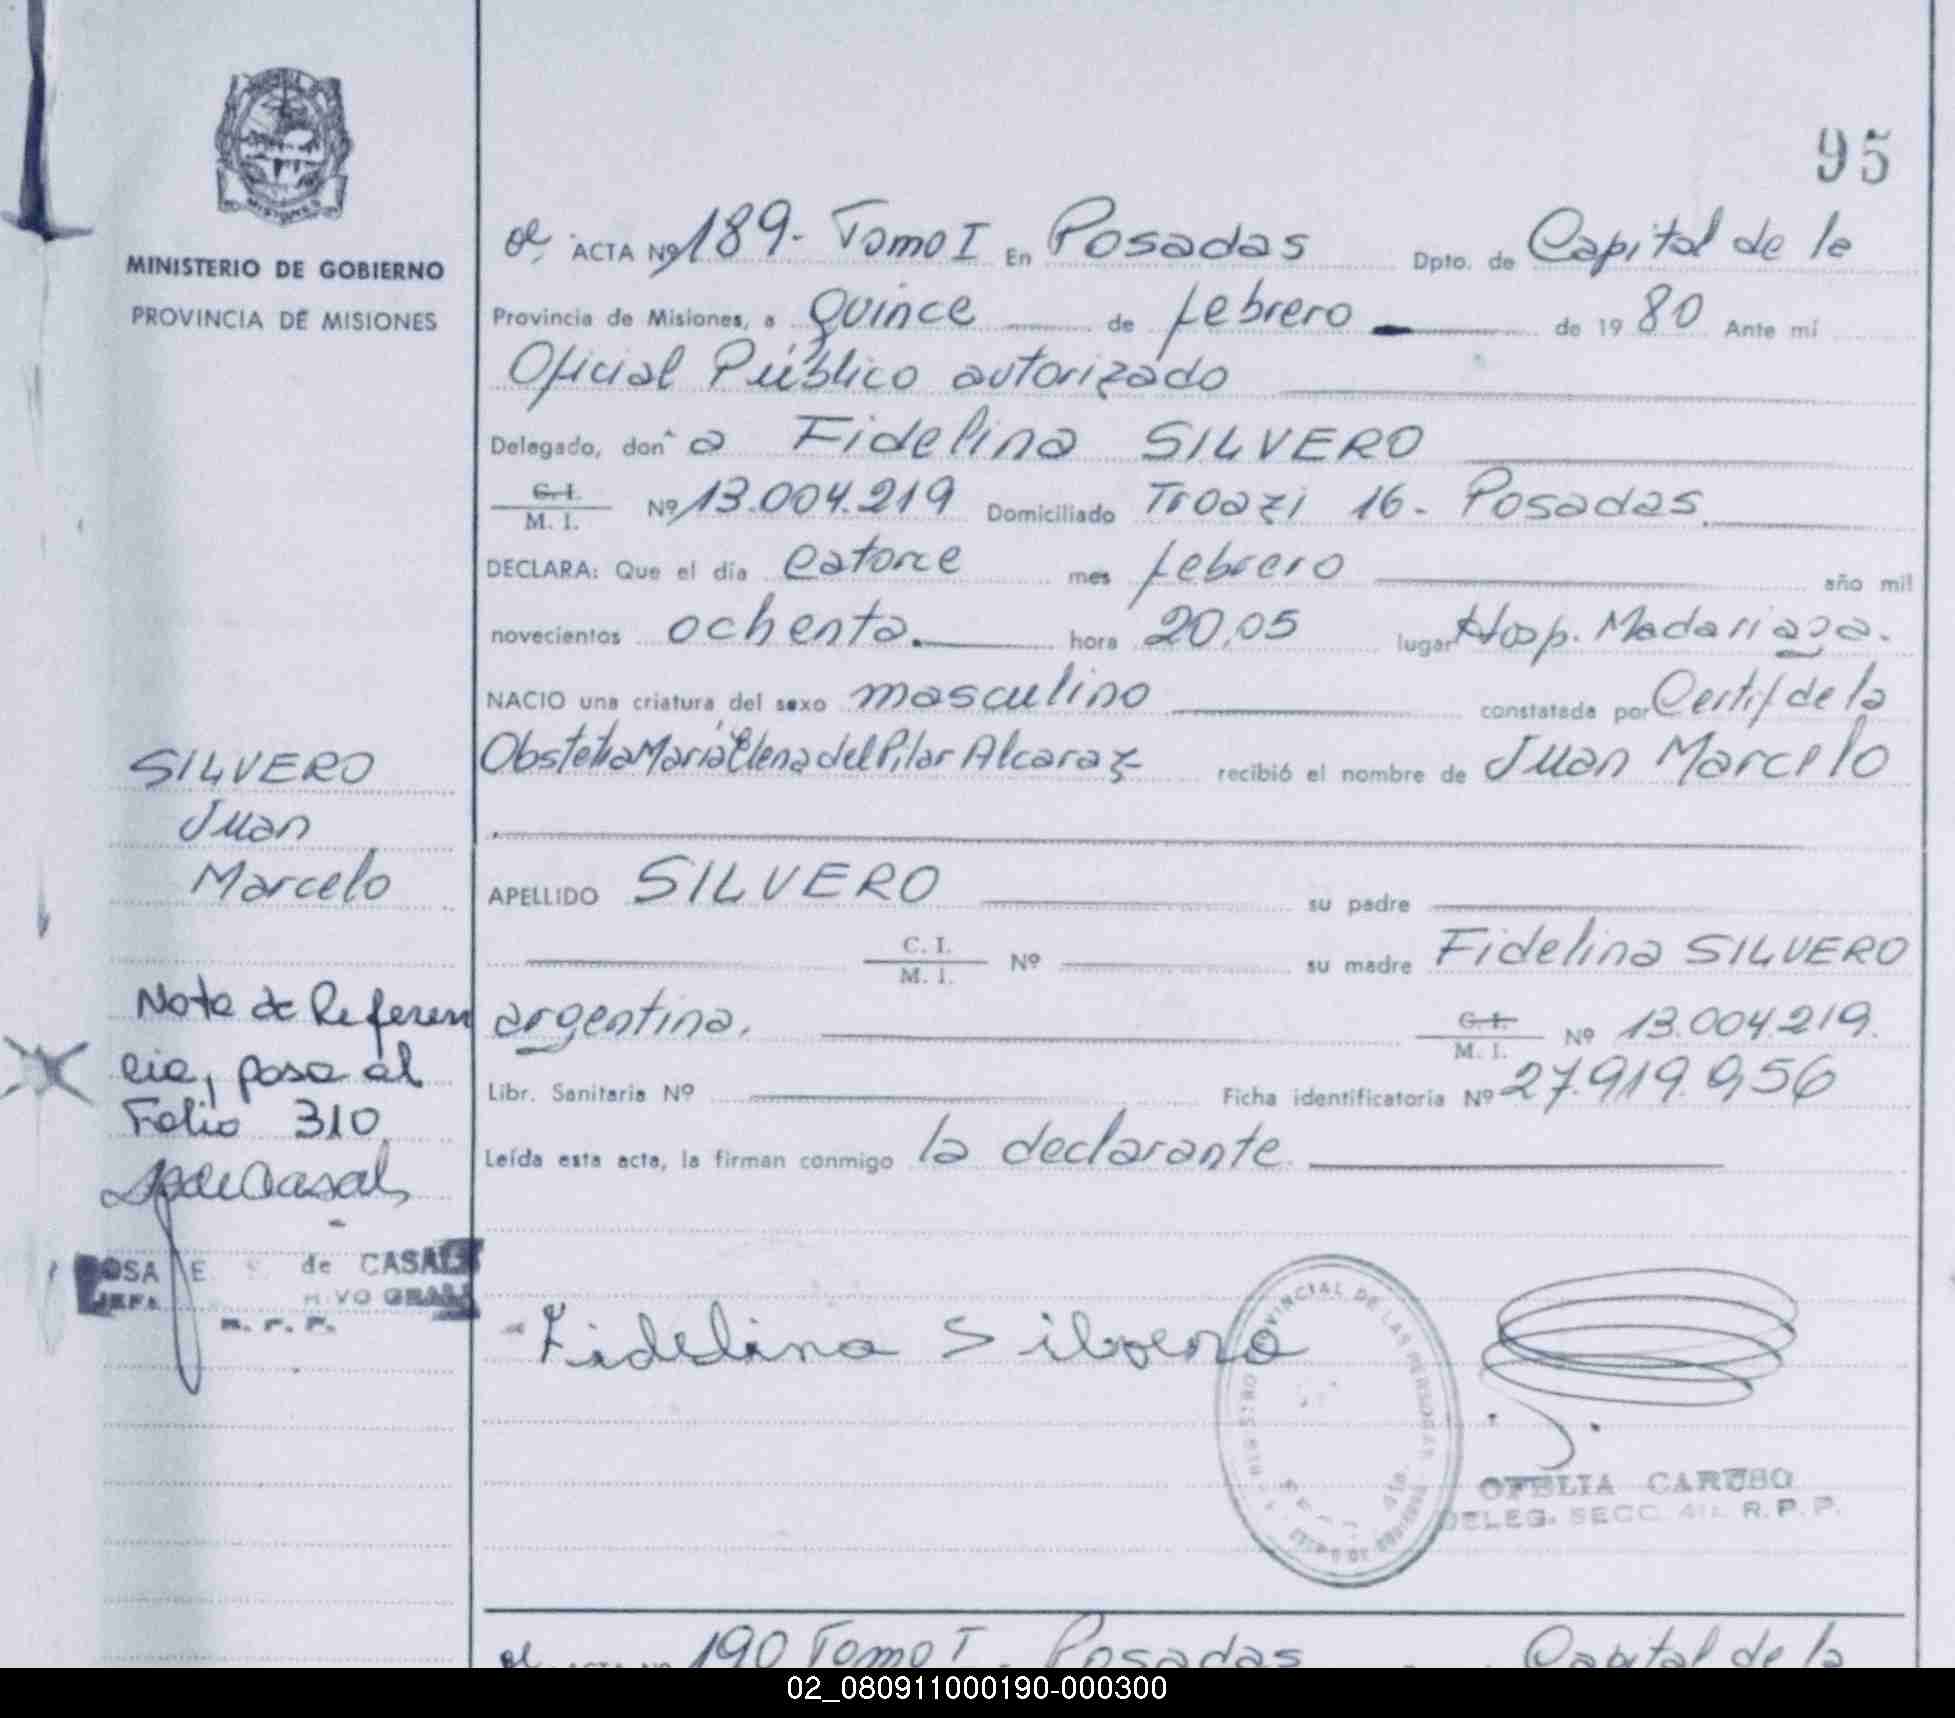 MISIONES
MINISTERIO DE GOBIERNO
PROVINCIA DE MISIONES
SILVERO
Juan
Marcelo
Nota de Referen
cia, pasa al
Folio 310
de CASAL
R. P. P.
95
ACTA Nº 189 - Tomo I En Posadas Dpto. de Capital de la
Provincia de Misiones, a quince de febrero de 19 80 Ante mí
Oficial Público autorizado
Delegado, don a Fidelina SILVERO
C. I. / M. I. Nº 13.004.219 Domiciliado 16 - Posadas
DECLARA: Que el día catorce mes febrero año mil
novecientos ochenta. hora 20,05 lugar Hosp. Madariaga.
NACIO una criatura del sexo masculino constatada por Certif de la
Obstetra María Elena del Pilar Alcaraz recibió el nombre de Juan Marcelo
APELLIDO SILVERO su padre
C. I. / M. I. Nº su madre Fidelina SILVERO
argentina. C. I. / M. I. Nº 13.004.219.
Libr. Sanitaria Nº Ficha identificatoria Nº 27.919.956
Leída esta acta, la firman conmigo la declarante.
Fidelina Silvero
OFELIA CARUSO
DELEG. SECC. 4ta. R. P. P.
190 Tomo I Posadas Capital de la
02_080911000190-000300